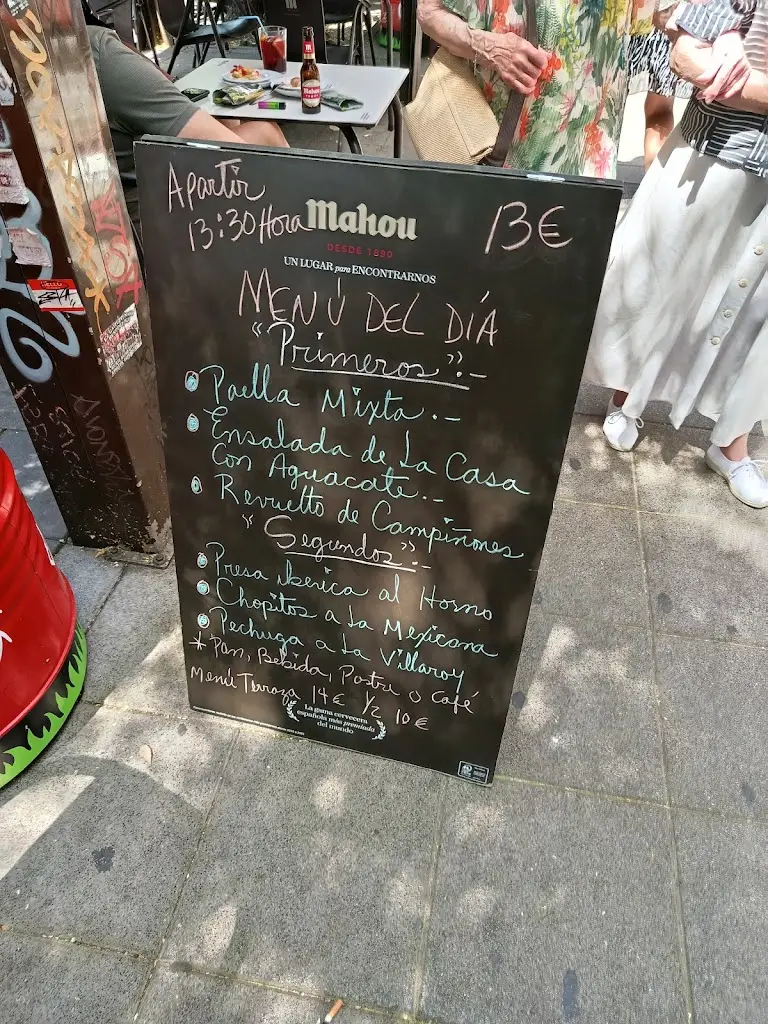 Apartir
13:30 Hora
13€
Mahou
DESDE 1890
UN LUGAR para ENCONTRARNOS
MENÚ DEL DÍA
"Primeros".-
Paella Mixta.-
Ensalada de La Casa
Con Aguacate.-
Revuelto de Campiñones
"Segundos".-
Presa iberica al Horno
Chopitos a La Mexicana
Pechuga a La Villaroy
* Pan, Bebida, Postre o Café
Menú Terraza 14€ 1/2 10€
La gama cervecera
española más premiada
del mundo
Mahou